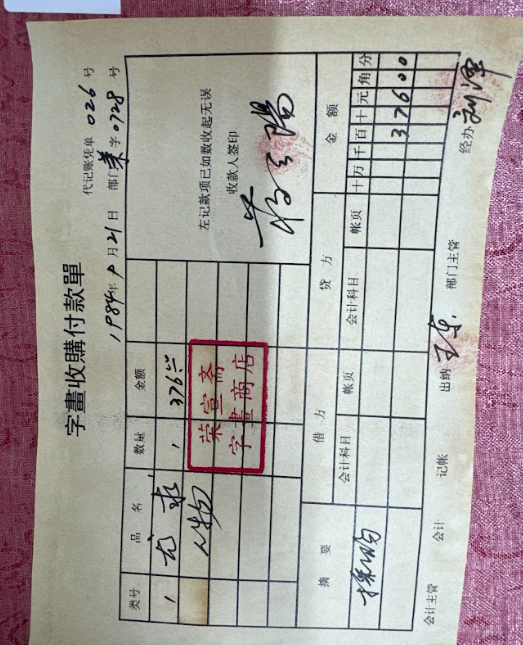 字畫收購付款單
代记账凭单 026 号
1984年9月21日 部门业字0728号
类号 品名 数量 金额
左记款项已如数收起无误
收款人签印
1 尤求 1 376.00
人物
荣宣斋
字畫商店
摘要 借方 贷方 金额
会计科目 帐页 会计科目 帐页 十万千百十元角分
採购 37600
会计主管 会计 记帐 出纳 王东 部门主管 经办 刘泽